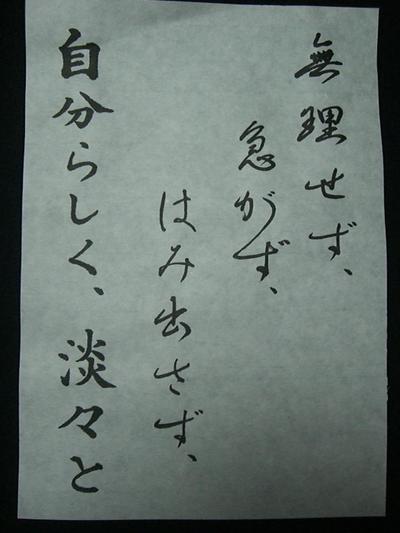 無理せず、
急がず、
はみ出さず、
自分らしく、淡々と